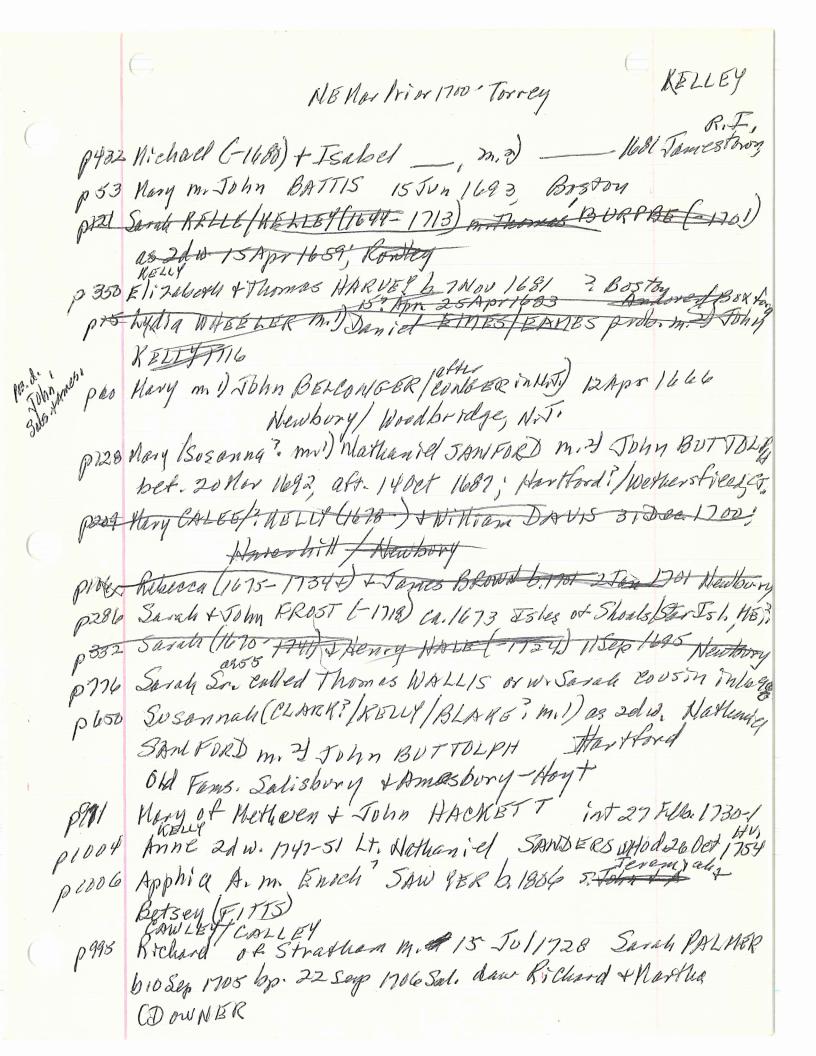 KELLEY
NE Mar Prior 1700 - Torrey
R.I.
p432 Michael (-1688) + Isabel ___, m.2) ___ 1681 Jamestown,
p53 Mary m. John BATTIS 15 Jun 1693, Boston
p121 Sarah KELLE/KELLEY (1644-1713) m. Thomas BURPEE (-1701)
as 2d w. 15 Apr 1659; Rowley
KELLY
p350 Elizabeth + Thomas HARVEY b 7 Nov 1681 ? Boston
15? Apr 25 Apr 1683 Andover/Boxford
p15 Lydia WHEELER m. 1) Daniel EIMES/EAMES prob. m. 2) John
KELLY 1716
John,
after
p60 Mary m 1) John BELCONGER/CONGER in N.J.) 12 Apr 1666
Newbury/Woodbridge, N.J.
p128 Mary/Susanna? m 1) Nathaniel SANFORD m. 2) John BUTTOLPH
bef. 20 Mar 1692, aft. 14 Oct 1687; Hartford?/Wethersfield, Ct.
p209 Mary CALEE/?KELLY (1678- ) + William DAVIS 31 Dec 1700;
Haverhill/Newbury
Rebecca (1675-1734+) + James BROWN b. 1701 2 Jan 1701 Newbury
p286 Sarah + John FROST (-1718) ca. 1673 Isles of Shoals/Star Isl., ME,?
p332 Sarah (1670-1741) + Henry HALE (-1724) 11 Sep 1695 Newbury
p776 Sarah Sr. called Thomas WALLIS or w. Sarah cousin in
p650 Susannah (CLARK?/KELLY/BLAKE? m. 1) as 2d w. Nathaniel
SANFORD m. 2) John BUTTOLPH Hartford
Old Fams. Salisbury + Amesbury - Hoyt
Mary of Methuen + John HACKETT int 27 Feb. 1730-1
KELLY Hv.
p1004 Anne 2d w. 1747-51 Lt. Nathaniel SANDERS who d 26 Oct 1754
Jeremiah +
p1006 Apphia A. m. Enoch? SAWYER b. 1806 s. John
Betsey (FITTS)
CAWLEY/CALLEY
p995 Richard of Stratham m. 15 Jul 1728 Sarah PALMER
b 10 Sep 1705 bp. 22 Sep 1706 Sal. dau Richard + Martha
(DOWNER